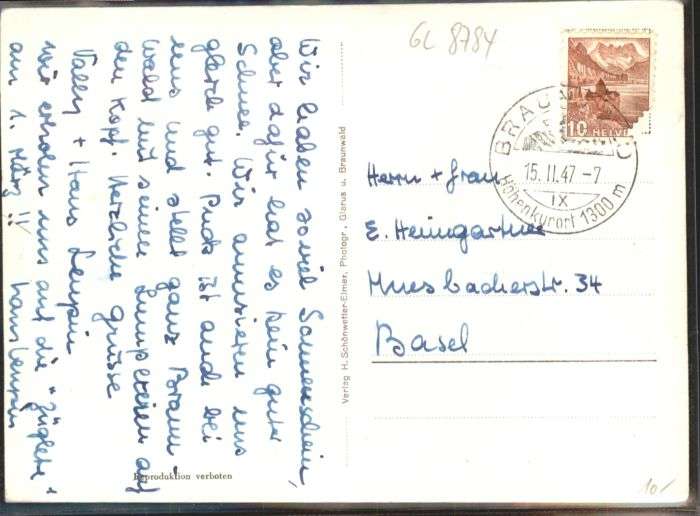 Wir haben so viel Sonnenschein,
aber dafür hat es kein guter
Schnee. Wir amüsieren uns
gleich gut. Puck ist auch bei
uns und stellt ganz Braun-
wald mit seinen Lumpereien auf
den Kopf. Herzliche Grüsse
Vally + Hans
wir erholen uns auf die „Züglete"
am 1. März!!
Reproduktion verboten
Verlag H. Schönwetter-Elmer, Photogr., Glarus u. Braunwald
GL 8784
10 HELVETIA
BRAUNWALD
15.II.47 -7
IX
Höhenkurort 1300 m
Herrn + Frau
E. Heimgartner
Muesbacherstr. 34
Basel
10/